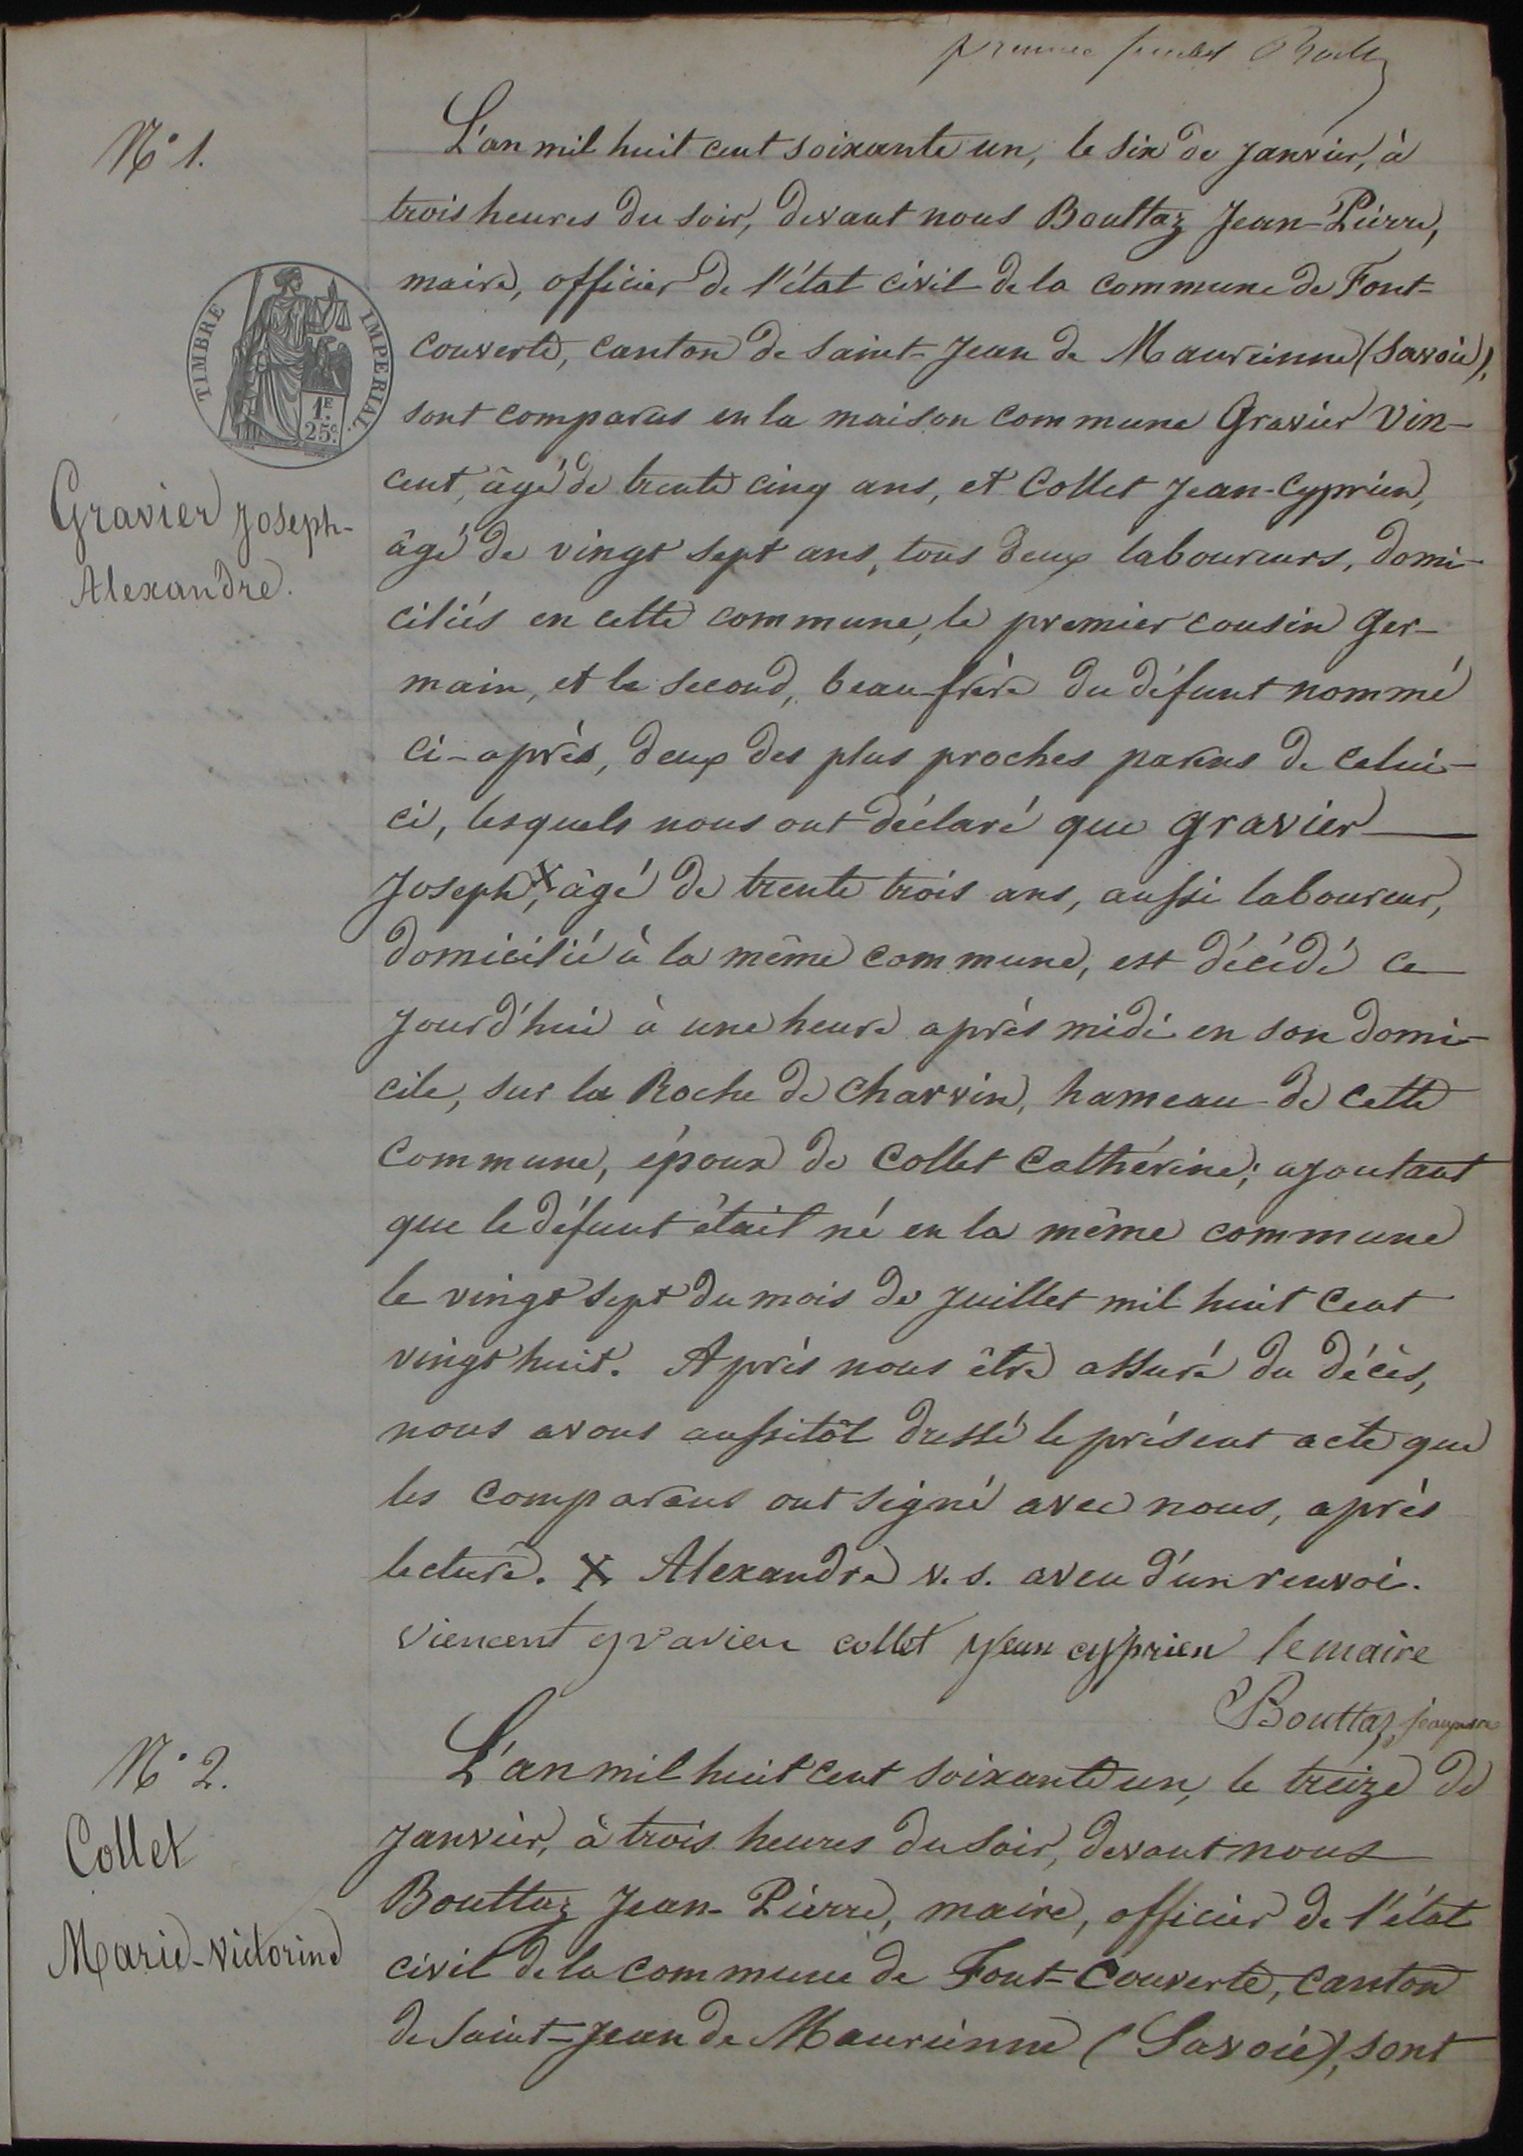 N° 1.
L'an mil huit cent soixante un, le six de janvier, à
trois heures du soir, devant nous Bouttaz Jean-Pierre,
maire, officier de l'état civil de la commune de Font-
couverte, canton de Saint-Jean de Maurienne (Savoie),
sont comparus en la maison commune Gravier Vin-
cent, âgé de trente cinq ans, et Collet Jean-Cyprien,
âgé de vingt sept ans, tous deux laboureurs, domi-
ciliés en cette commune, le premier cousin ger-
main, et le second, beau-frère du défunt nommé
ci-après, deux des plus proches parens de celui-
ci, lesquels nous ont déclaré que Gravier
Joseph X, âgé de trente trois ans, aussi laboureur,
domicilié à la même commune, est décédé ce
jourd'hui à une heure après midi en son domi-
cile, sur la Roche de Charvin, hameau de cette
commune, époux de Collet Cathérine; ajoutant
que le défunt était né en la même commune
le vingt sept du mois de juillet mil huit cent
vingt huit. Après nous être assuré du décès,
nous avons aussitôt dressé le présent acte que
les comparens ont signé avec nous, après
lecture. X Alexandre v. s. aveu d'un renvoi.
viencent gravier collet jean cyprien le maire
Bouttaz jeanpierre
TIMBRE IMPERIAL
1E
25c.
Gravier Joseph-
Alexandre.
N° 2.
Collet
Marie-Victorine
L'an mil huit cent soixante un, le treize de
janvier, à trois heures du soir, devant nous
Bouttaz Jean-Pierre, maire, officier de l'état
civil de la commune de Font-Couverte, canton
de Saint-Jean de Maurienne (Savoie), sont